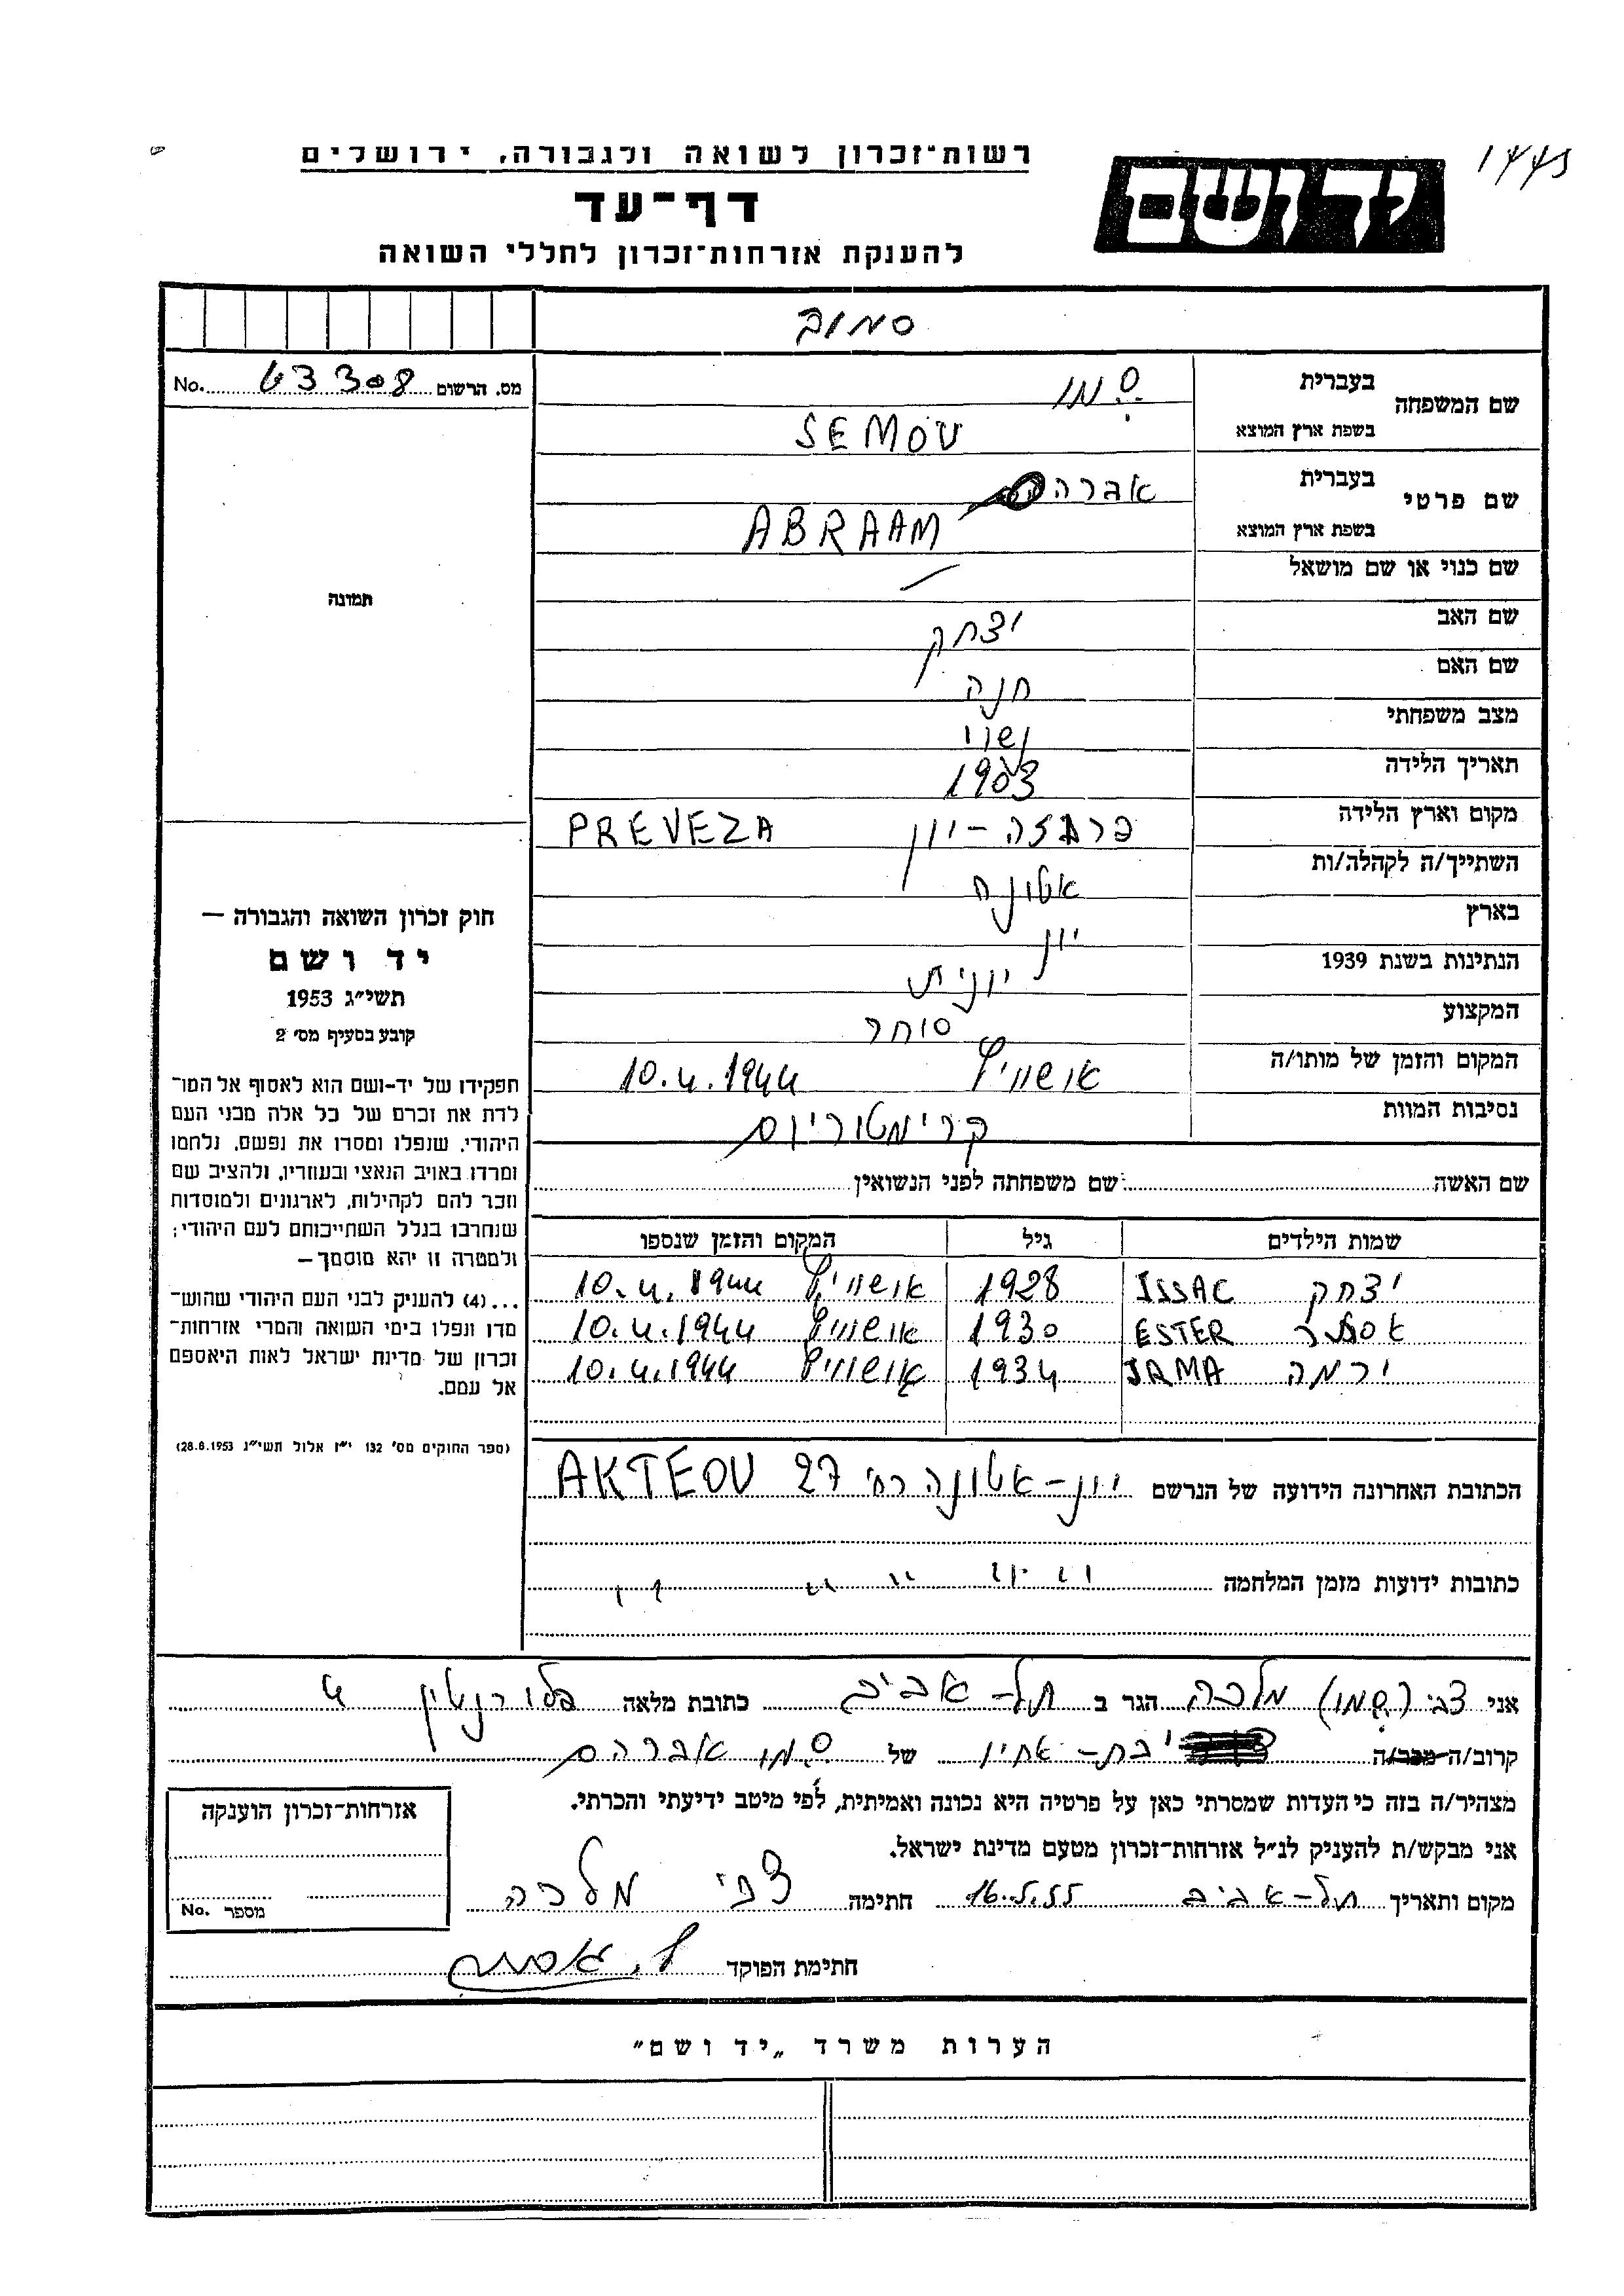 רשות־זכרון לשואה ולגבורה, ירושלים
דף־עד
להענקת אזרחות־זכרון לחללי השואה
יד ושם
סמוב
מס. הרשום 63308 No.
שם המשפחה
בעברית סמו
בשפת ארץ המוצא SEMOU
שם פרטי
בעברית אברהם
בשפת ארץ המוצא ABRAAM
שם כנוי או שם מושאל —
שם האב יצחק
שם האם חנה
מצב משפחתי נשוי
תאריך הלידה 1903
מקום וארץ הלידה פרבזה - יון PREVEZA
השתייך/ה לקהלה/ות אטונה
בארץ יון
הנתינות בשנת 1939 יונית
המקצוע סוחר
המקום והזמן של מותו/ה אושוויץ 10.4.1944
נסיבות המוות קרימטוריום
תמונה
חוק זכרון השואה והגבורה —
יד ושם
תשי״ג 1953
קובע בסעיף מס׳ 2
תפקידו של יד-ושם הוא לאסוף אל המו־
לדת את זכרם של כל אלה מבני העם
היהודי, שנפלו ומסרו את נפשם, נלחמו
ומרדו באויב הנאצי ובעוזריו, ולהציב שם
וזכר להם לקהילות, לארגונים ולמוסדות
שנחרבו בגלל השתייכותם לעם היהודי;
ולמטרה זו יהא מוסמך —
...(4) להעניק לבני העם היהודי שהוש־
מדו ונפלו בימי השואה והמרי אזרחות־
זכרון של מדינת ישראל לאות היאספם
אל עמם.
(ספר החוקים מס׳ 132 י״ז אלול תשי״ג 28.8.1953)
שם האשה שם משפחתה לפני הנשואין
שמות הילדים גיל המקום והזמן שנספו
יצחק ISSAC 1928 אושוויץ 10.4.1944
אסתר ESTER 1930 אושוויץ 10.4.1944
ירמה IRMA 1934 אושוויץ 10.4.1944
הכתובת האחרונה הידועה של הנרשם יון - אטונה רח׳ AKTEOU 27
כתובות ידועות מזמן המלחמה " " " " "
אני צבי (סמו) מלכה הגר ב תל-אביב כתובת מלאה פלורנטין 4
קרוב/ה מכר/ה בת-אחיו של סמו אברהם
מצהיר/ה בזה כי העדות שמסרתי כאן על פרטיה היא נכונה ואמיתית, לפי מיטב ידיעתי והכרתי.
אני מבקש/ת להעניק לנ״ל אזרחות־זכרון מטעם מדינת ישראל.
מקום ותאריך תל-אביב חתימה צבי מלכה
חתימת הפוקד
אזרחות־זכרון הוענקה
מספר No.
הערות משרד „יד ושם״